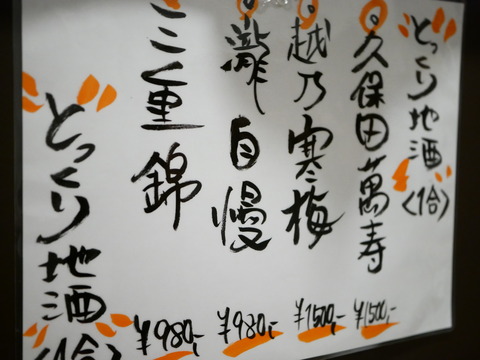 どっくり地酒
〈1合〉
久保田萬寿
¥1500,-
越乃寒梅
¥1500,-
瀧自慢
¥980,-
三重錦
¥980,-
どっくり地酒
〈1合